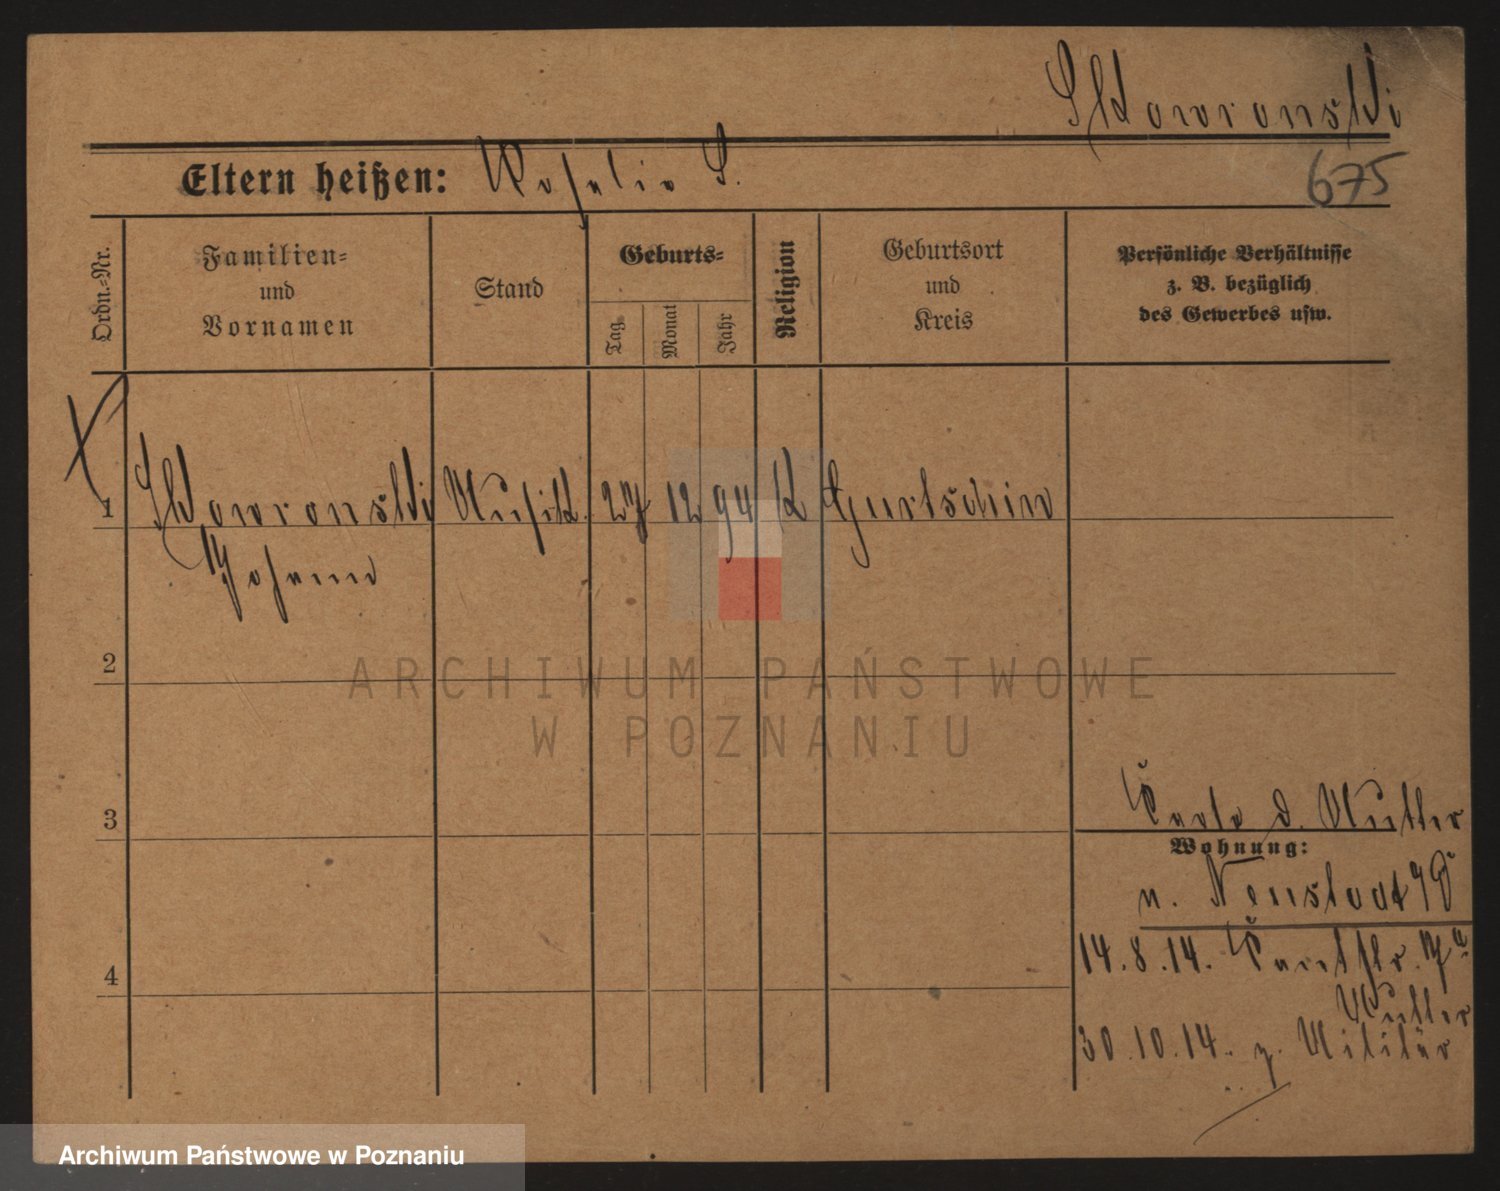 Skowronski
Eltern heißen: Rosalie S.
675
Ordn.-Nr.
Familien-
und
Vornamen
Stand
Geburts-
Tag
Monat
Jahr
Religion
Geburtsort
und
Kreis
Persönliche Verhältnisse
z. B. bezüglich
des Gewerbes usw.
1 Skowronski Musik. 27 12 94 K Gurtschin
Johann
2
ARCHIWUM PAŃSTWOWE
W POZNANIU
3
Karte d. Mutter
Wohnung:
n. Neustadt
4
14.8.14.
Mutter
30.10.14. z. Militär
Archiwum Państwowe w Poznaniu